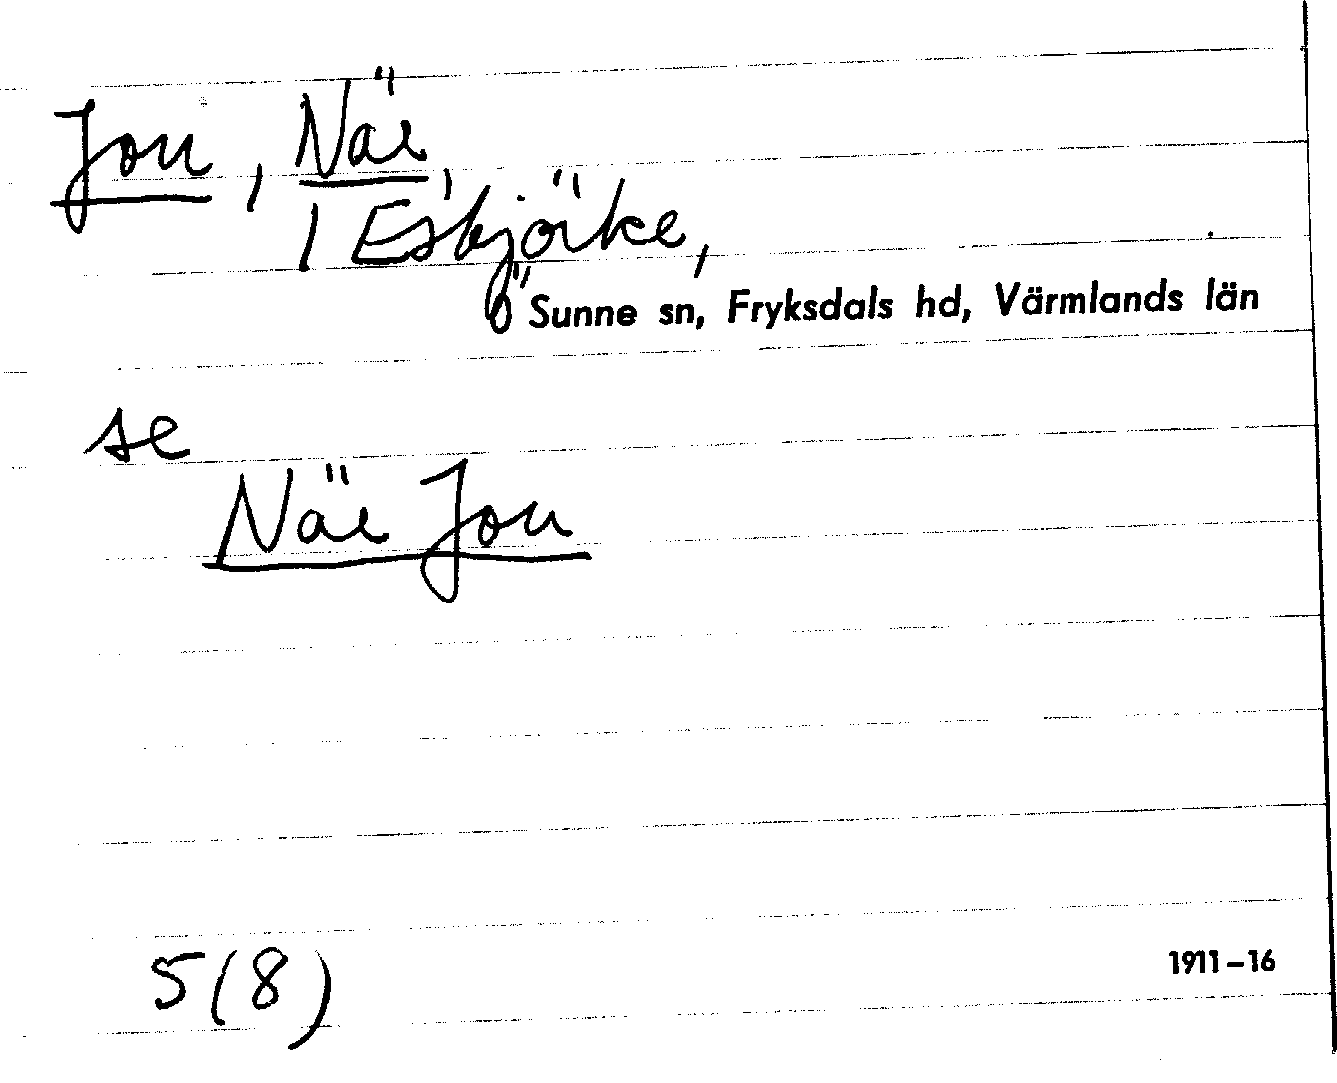 Jon, När,
/ Esbjörke,
Sunne sn, Fryksdals hd, Värmlands län
se
När Jon
5(8)
1911–16